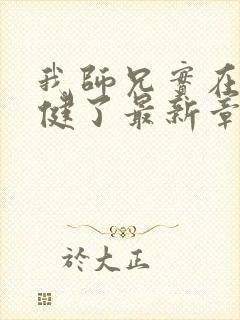 我師兄實在
健了最新章
於大正